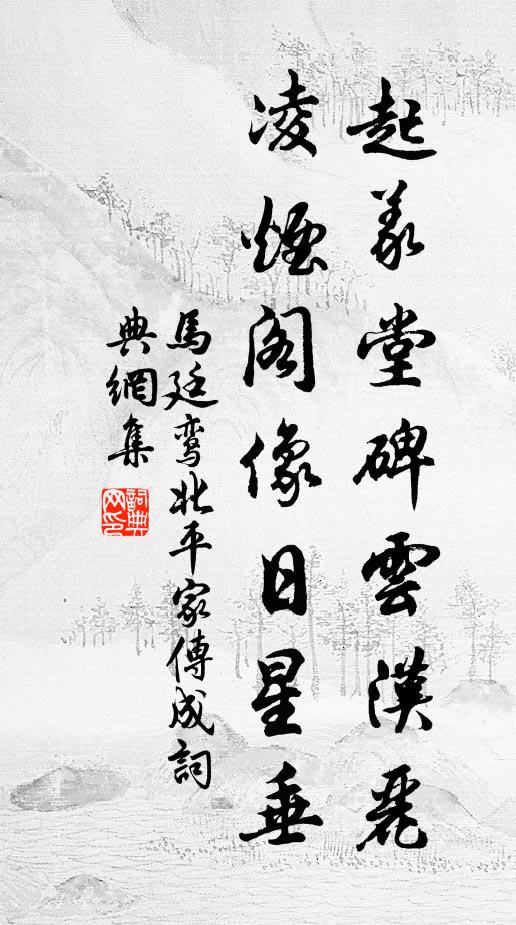 起義堂碑雲漢麗
凌煙閣像日星垂
馬廷鸞北平家傳成詞
典網集
詞典網印